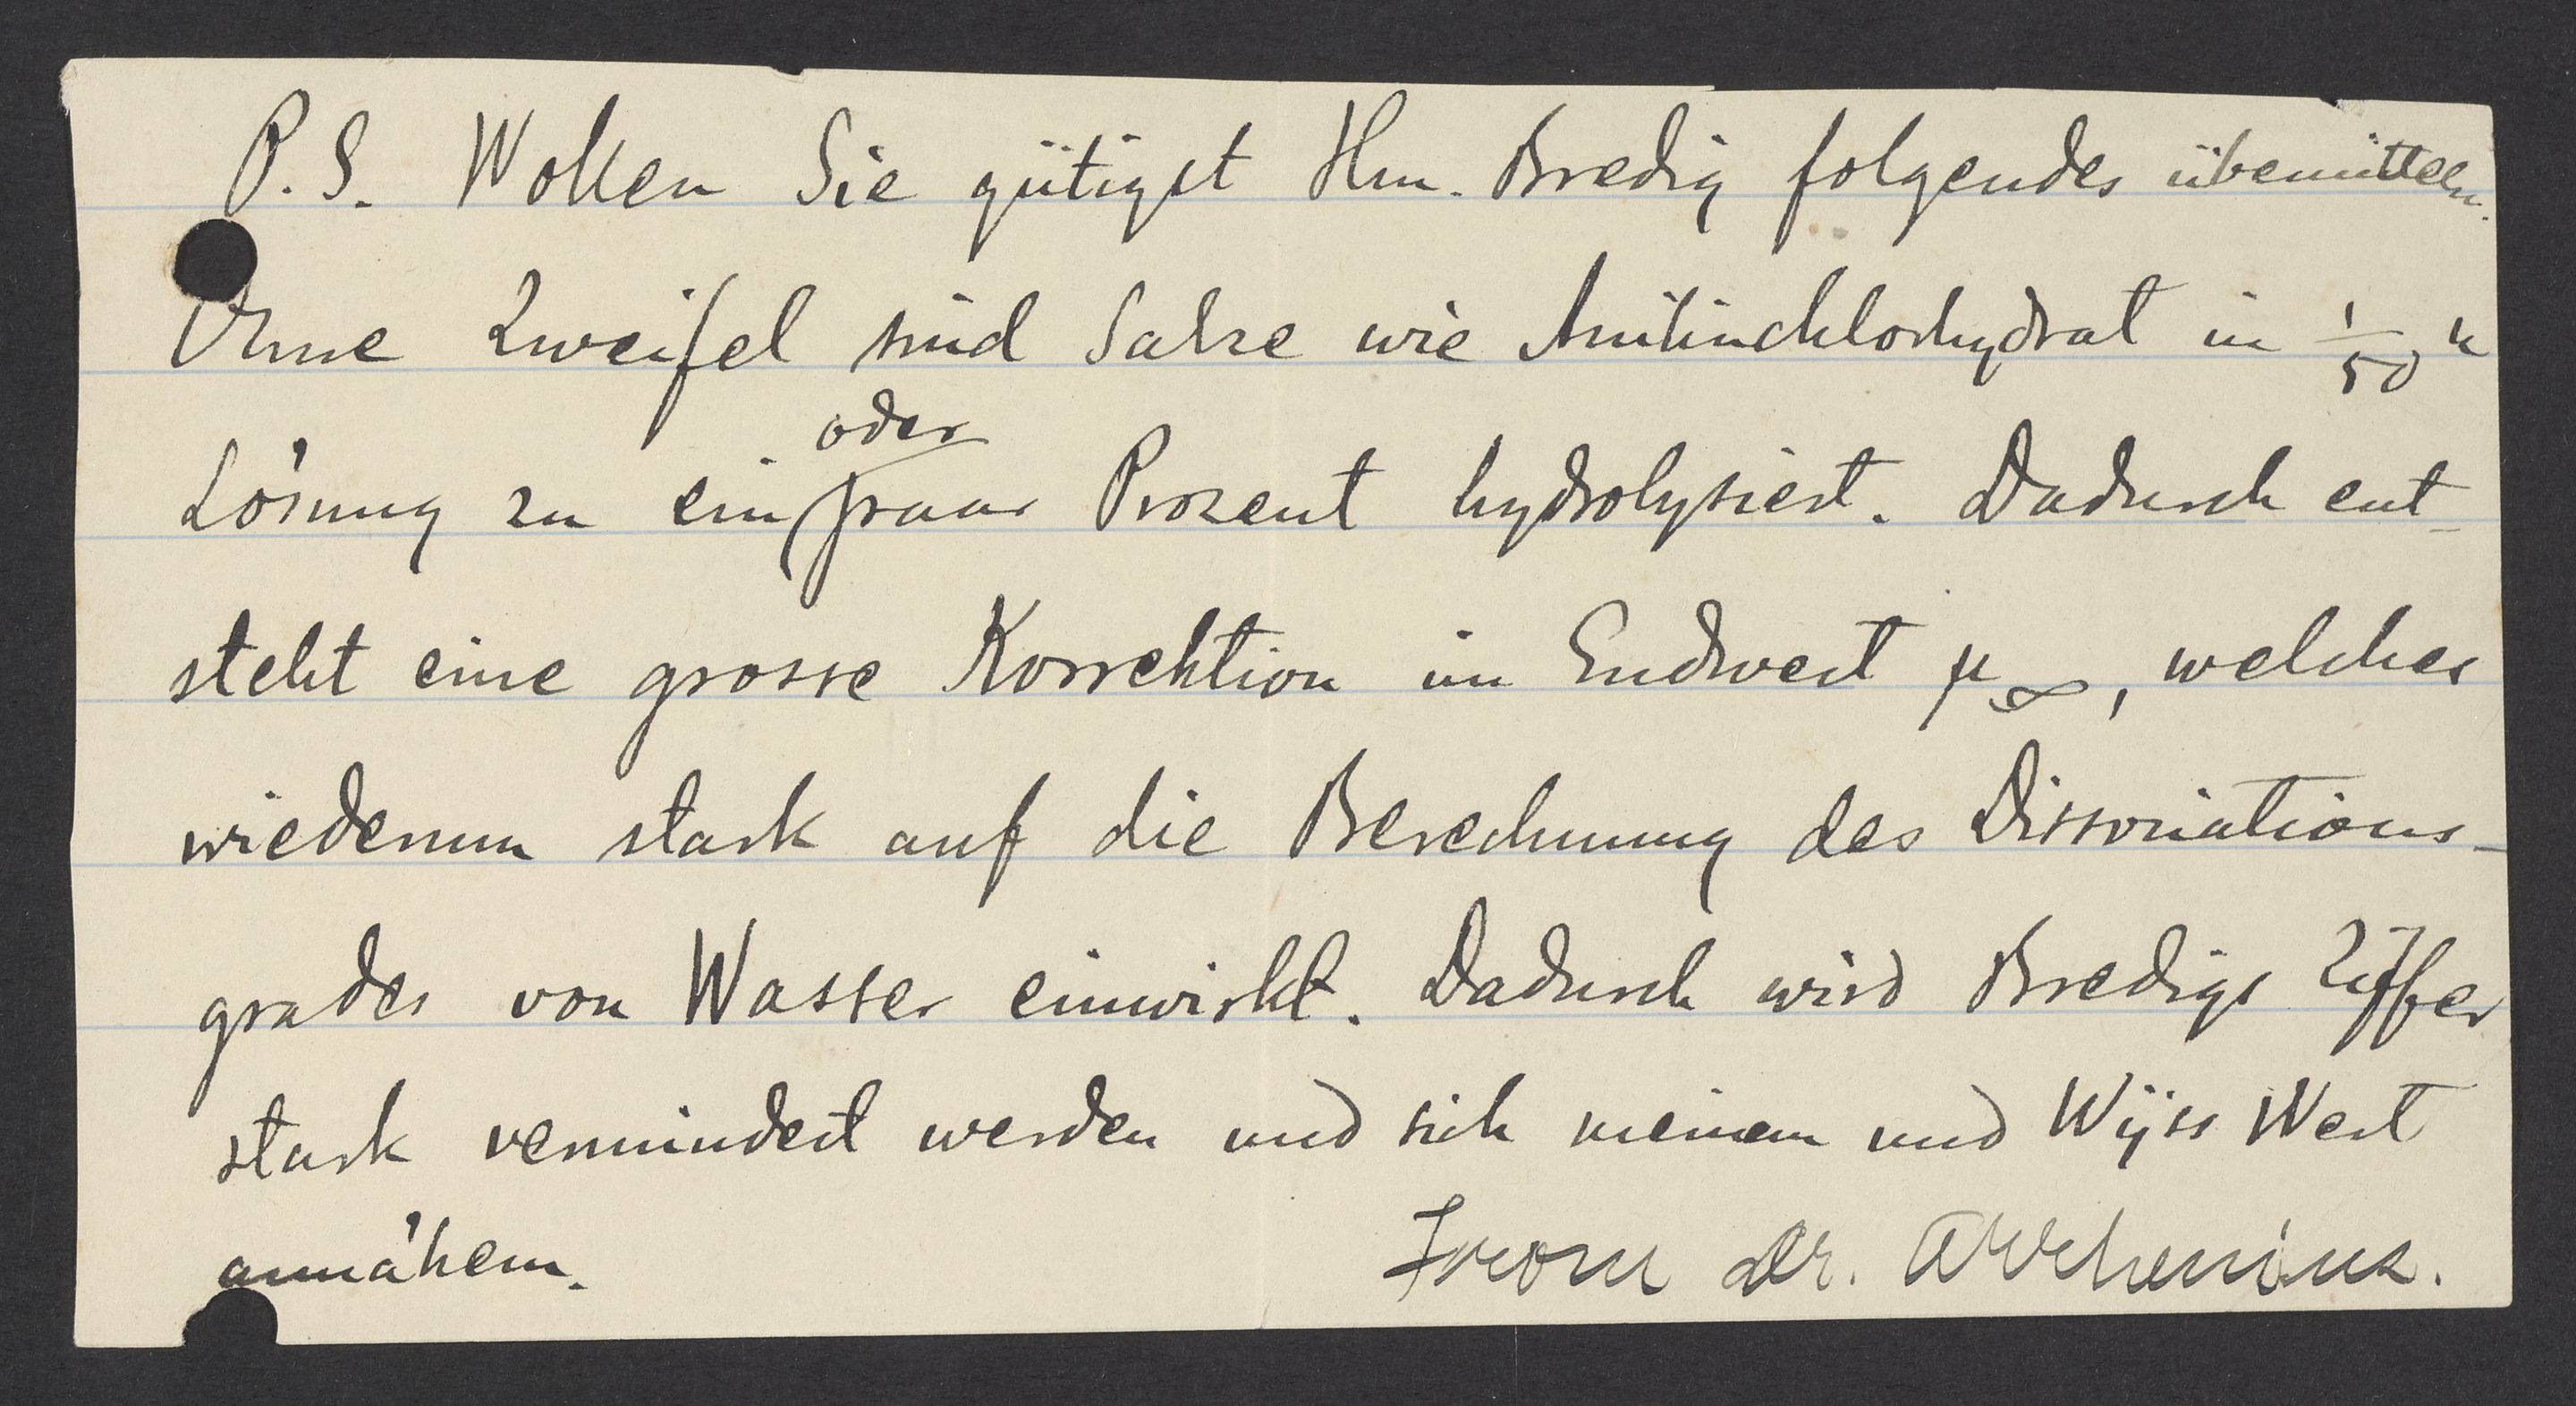 P. S. Wollen Sie gütigst Hrn. Bredig folgendes übermitteln.
Ohne Zweifel sind Salze wie Anilinchlorhydrat in 1/50 n
oder
Lösung zu ein paar Prozent hydrolysiert. Dadurch ent-
steht eine grosse Korrektion im Endwert μ∞, welches
wiederum stark auf die Berechnung des Dissociations-
grades von Wasser einwirkt. Dadurch wird Bredigs Ziffer
stark vermindert werden und sich meinem und Wijss Wert
annähern.
From Dr. Arrhenius.